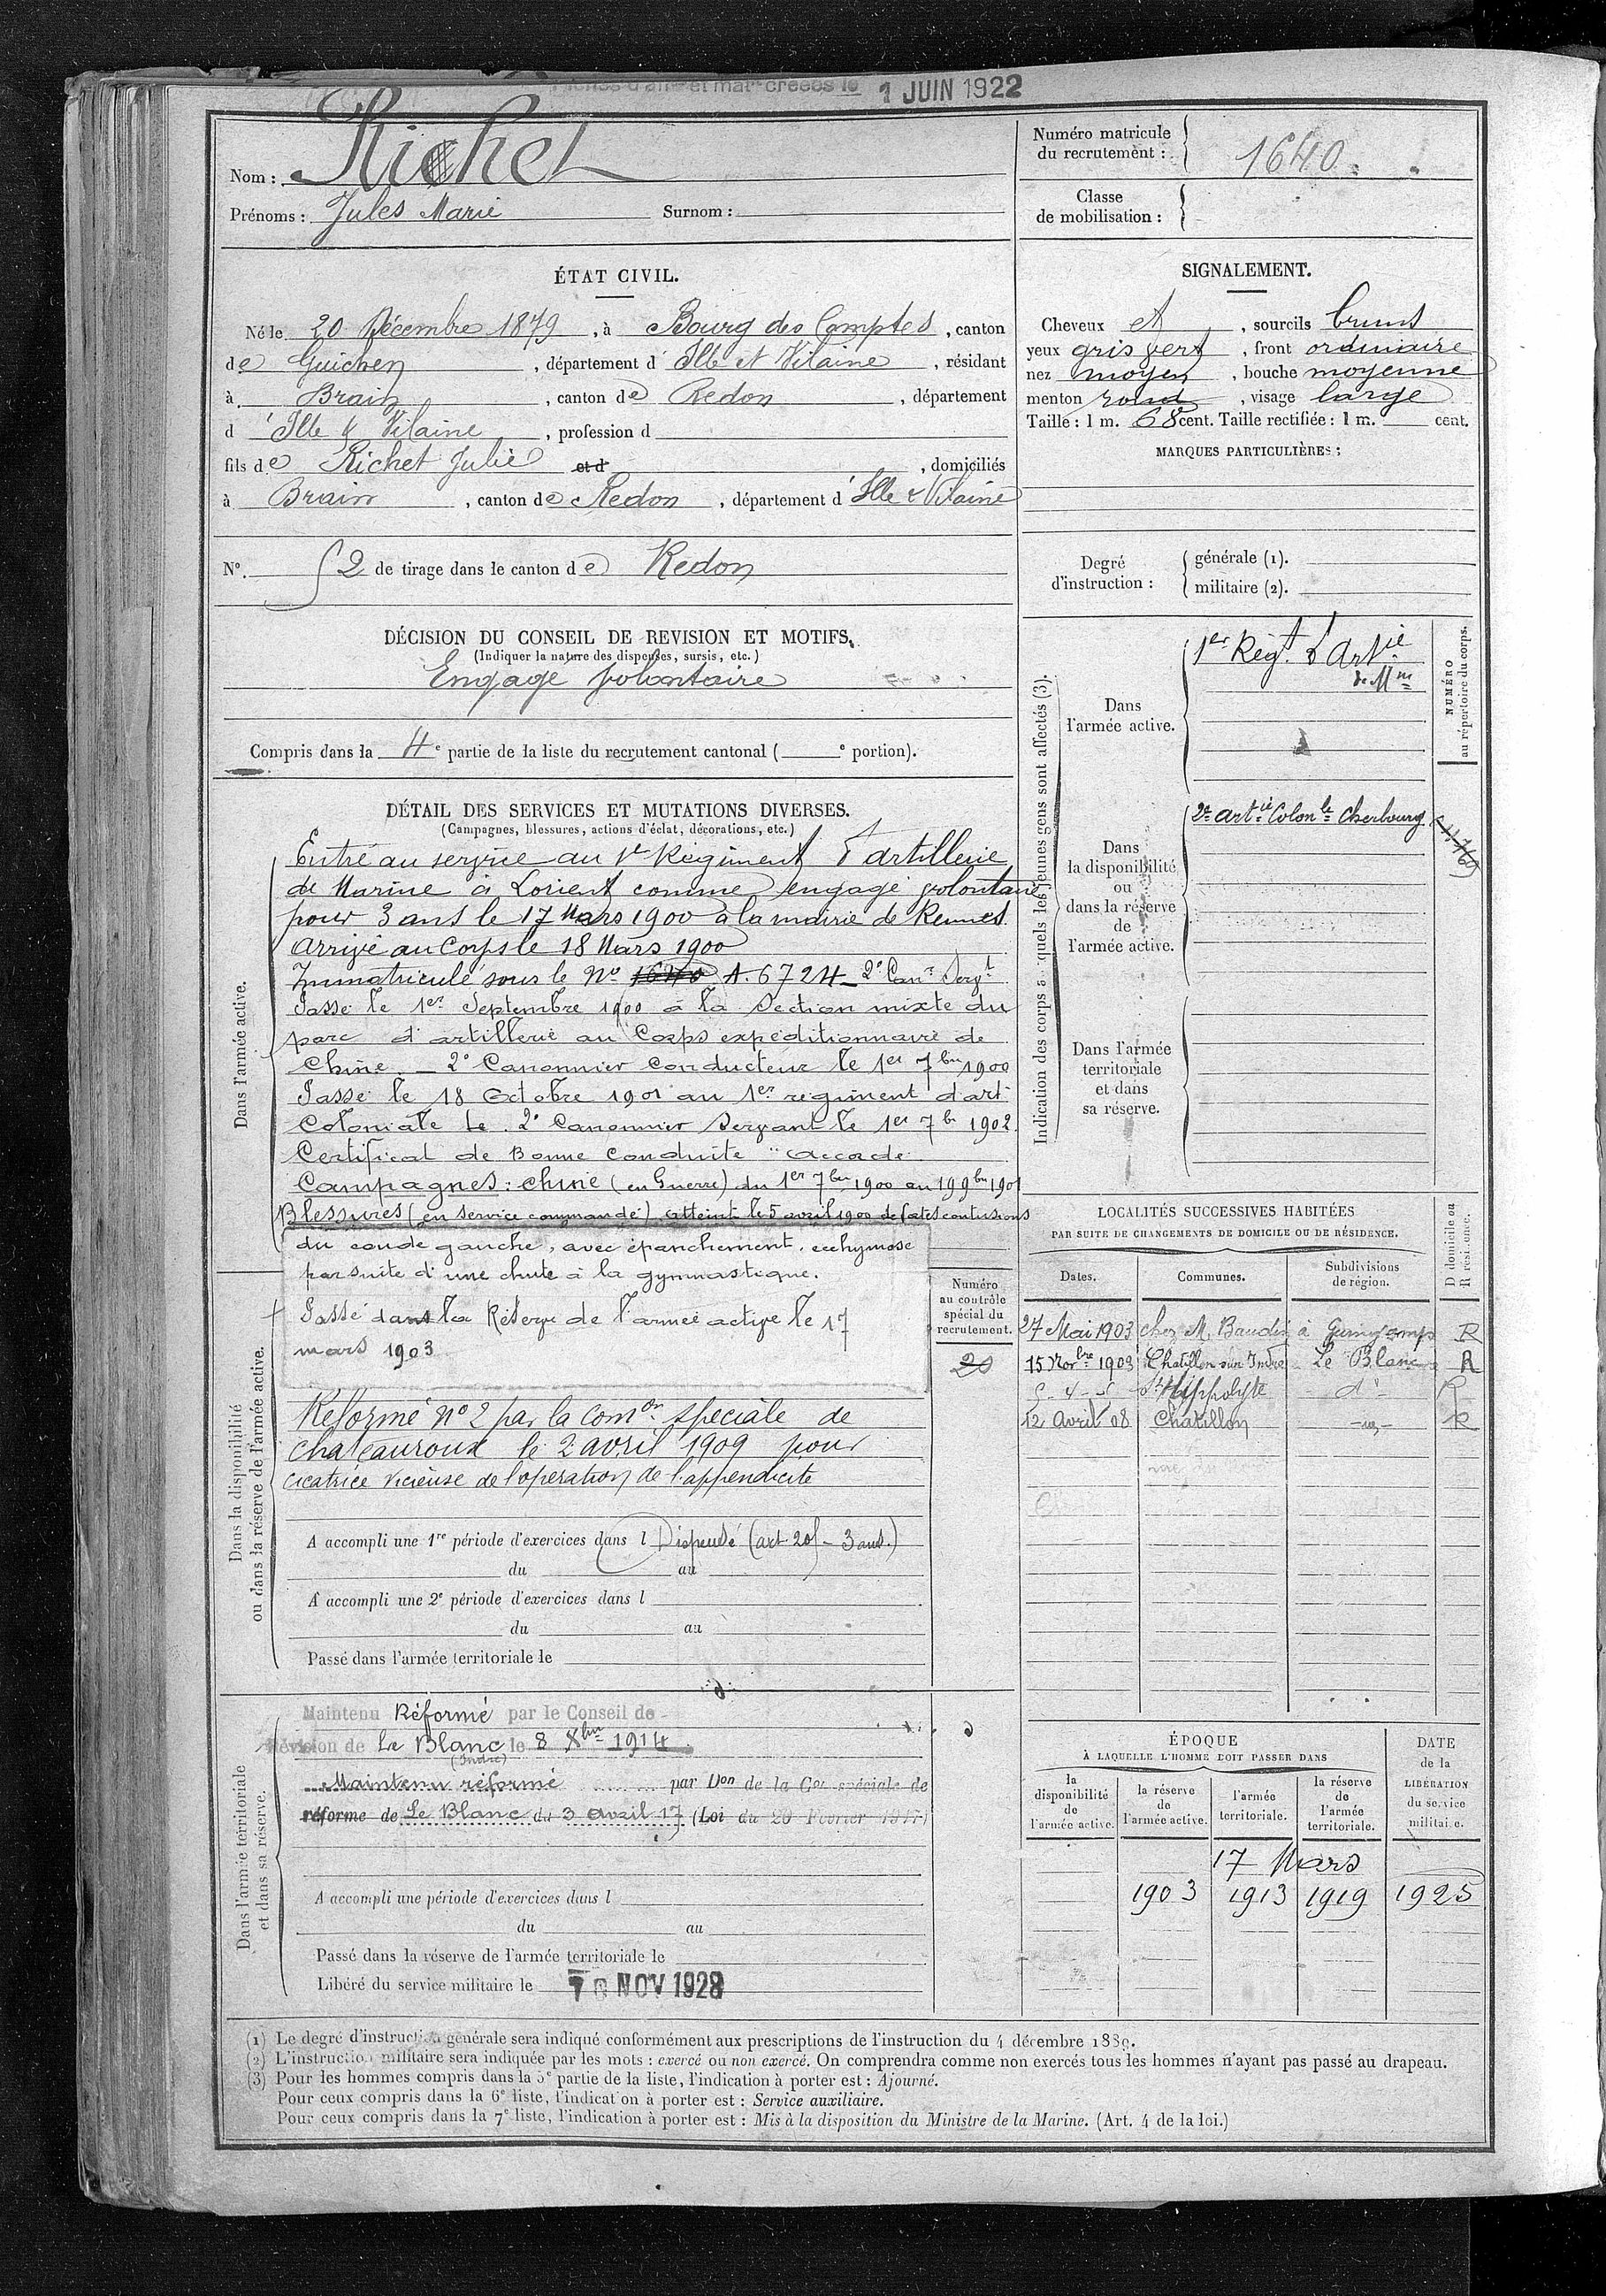 1 JUIN 1922
Nom : Richet
Prénoms : Jules Marie Surnom :
Numéro matricule
du recrutement : 1640
Classe
de mobilisation :
ÉTAT CIVIL.
Né le 20 Décembre 1879, à Bourg des Comptes, canton
de Guichen, département d' Ille et Vilaine, résidant
à Brain, canton de Redon, département
d' Ille & Vilaine, profession d
fils de Richet Julie et d , domiciliés
à Brain, canton de Redon, département d' Ille & Vilaine
N° 2 de tirage dans le canton de Redon
SIGNALEMENT.
Cheveux et , sourcils bruns
yeux gris vert , front ordinaire
nez moyen , bouche moyenne
menton rond , visage large
Taille : 1 m. 68 cent. Taille rectifiée : 1 m. cent.
MARQUES PARTICULIÈRES :
Degré
d'instruction :
générale (1).
militaire (2).
DÉCISION DU CONSEIL DE REVISION ET MOTIFS.
(Indiquer la nature des dispenses, sursis, etc.)
Engagé volontaire
Compris dans la 4e partie de la liste du recrutement cantonal ( e portion).
DÉTAIL DES SERVICES ET MUTATIONS DIVERSES.
(Campagnes, blessures, actions d'éclat, décorations, etc.)
Dans l'armée active.
Entré au service au 1er Régiment d'artillerie
de Marine à Lorient comme engagé volontaire
pour 3 ans le 17 Mars 1900 à la mairie de Rennes
Arrivé au Corps le 18 Mars 1900
Immatriculé sous le No 1640 A. 6724 - 2e Canr Servt
Passé le 1er Septembre 1900 à la Section mixte du
parc d'artillerie au Corps expéditionnaire de
Chine. - 2e Canonnier Conducteur le 1er 7bre 1900
Passé le 18 Octobre 1901 au 1er régiment d'art
Coloniale le 2e Canonnier Servant le 1er 7b 1902.
Certificat de Bonne Conduite "accordé
Campagnes : Chine (en Guerre) du 1er 7bre 1900 au 19 9bre 1901
Blessures (en service commandé) Atteint le 5 avril 1900 de fortes contusions
du coude gauche, avec épanchement, ecchymose
par suite d'une chute à la gymnastique.
Dans la disponibilité
ou dans la réserve de l'armée active.
Passé dans la Réserve de l'armée active le 17
mars 1903
Réformé No 2 par la comon spéciale de
Chateauroux le 2 avril 1909 pour
cicatrice vicieuse de l'opération de l'appendicite
A accompli une 1re période d'exercices dans l Dispensé (art 20 - 3 ans.)
du au
A accompli une 2e période d'exercices dans l
du au
Passé dans l'armée territoriale le
Numéro
au contrôle
spécial du
recrutement.
20
Dans l'armée territoriale
et dans sa réserve.
Maintenu Réformé par le Conseil de
Révision de Le Blanc le 8 Xbre 1914
(Indre)
Maintenu réformé par Don de la Con spéciale de
réforme de Le Blanc du 3 Avril 17 (Loi du 20 Février 1917)
A accompli une période d'exercices dans l
du au
Passé dans la réserve de l'armée territoriale le
Libéré du service militaire le NOV 1928
Indication des corps quels les jeunes gens sont affectés (3).
NUMÉRO
au répertoire du corps.
Dans
l'armée active.
1er Régt d'Artie
de Mne
Dans
la disponibilité
ou
dans la réserve
de
l'armée active.
2e Artie Colonle Cherbourg
Dans l'armée
territoriale
et dans
sa réserve.
LOCALITÉS SUCCESSIVES HABITÉES
PAR SUITE DE CHANGEMENTS DE DOMICILE OU DE RÉSIDENCE.
Dates. Communes. Subdivisions
de région.
D domicile ou
R résidence.
27 Mai 1903 chez M. Baudin à Guingamp R
15 Novbre 1903 Chatillon sur Indre Le Blanc R
St Hippolyte do R
12 Avril 08 Chatillon R
ÉPOQUE
À LAQUELLE L'HOMME DOIT PASSER DANS
la
disponibilité
de
l'armée active.
la réserve
de
l'armée active.
l'armée
territoriale.
la réserve
de
l'armée
territoriale.
DATE
de la
LIBÉRATION
du service
militaire.
17 Mars
1903 1913 1919 1925
(1) Le degré d'instruction générale sera indiqué conformément aux prescriptions de l'instruction du 4 décembre 1889.
(2) L'instruction militaire sera indiquée par les mots : exercé ou non exercé. On comprendra comme non exercés tous les hommes n'ayant pas passé au drapeau.
(3) Pour les hommes compris dans la 5e partie de la liste, l'indication à porter est : Ajourné.
Pour ceux compris dans la 6e liste, l'indication à porter est : Service auxiliaire.
Pour ceux compris dans la 7e liste, l'indication à porter est : Mis à la disposition du Ministre de la Marine. (Art. 4 de la loi.)